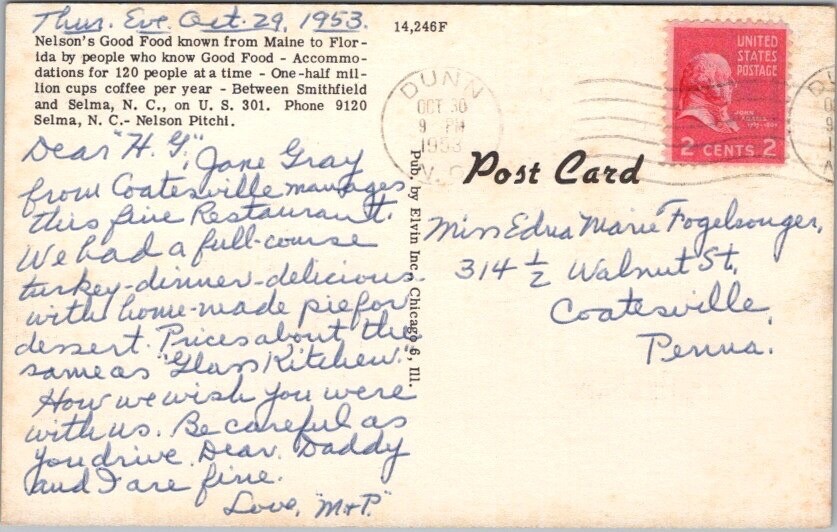 Thur. Eve. Oct. 29, 1953.
Nelson's Good Food known from Maine to Flor-
ida by people who know Good Food - Accommo-
dations for 120 people at a time - One-half mil-
lion cups coffee per year - Between Smithfield
and Selma, N. C., on U. S. 301. Phone 9120
Selma, N. C.- Nelson Pitchi.
Dear "H. G.", Jane Gray
from Coatesville manages
this fine Restaurant.
We had a full-course
turkey-dinner-delicious
with home-made pie for
dessert. Prices about the
same as "Glass Kitchen."
How we wish you were
with us. Be careful as
you drive, Dear. Daddy
and I are fine.
Love, "M+P."
14,246F
Pub. by Elvin Inc., Chicago 6, Ill.
DUNN
OCT 30
9 PM
1953
N. C.
UNITED
STATES
POSTAGE
JOHN
ADAMS
2 CENTS 2
Post Card
Miss Edna Marie Fogelsonger,
314 ½ Walnut St.,
Coatesville,
Penna.